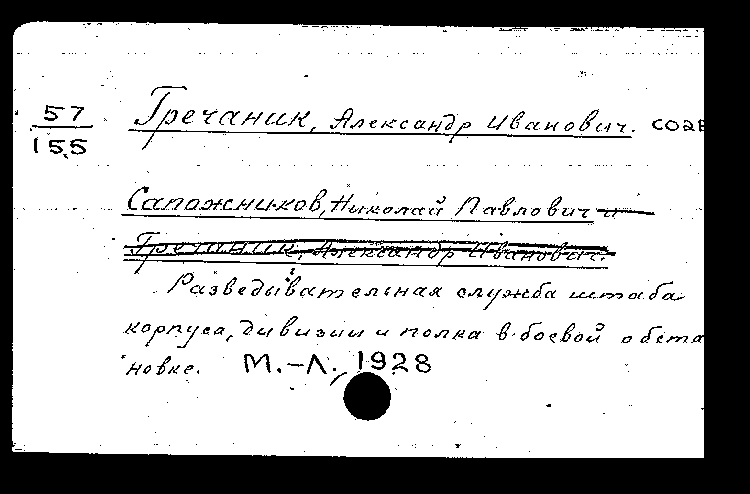 57 Гречаник, Александр Иванович. соав
155
Сапожников, Николай Павлович и
Гречаник, Александр Иванович.
Разведывательная служба штаба
корпуса, дивизии и полка в боевой обста
новке. М.-Л., 1928